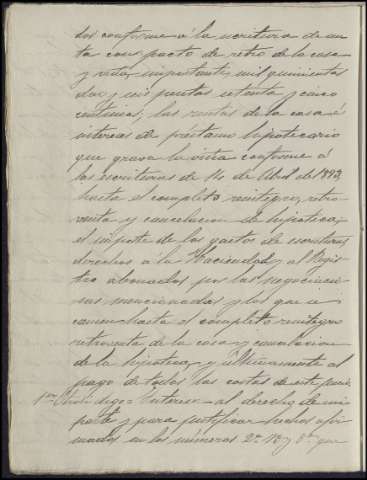 dos conforme á la escritura de ven
ta con pacto de retro de la casa
y viña importantes mil quinientas
dos y seis pesetas setenta y cinco
centimos; las rentas de la casa é
intereses de préstamo hipotecario
que grava la viña conforme á
las escrituras de 14 de Abril de 1893,
hasta el completo reintegro, retro-
venta y cancelacion de hipoteca;
el importe de los gastos de escrituras,
derechos á la Hacienda y al Regis
tro abonados por las
mencionadas y los que
hasta el completo reintegro
retroventa de la casa y cancelacion
de la hipoteca, y últimamente al
pago de todas las costas de este juicio
1er Otrosi digo = Interesa al derecho de mi
parte y para justificar hechos afir
mados en los números 2º y 8º que